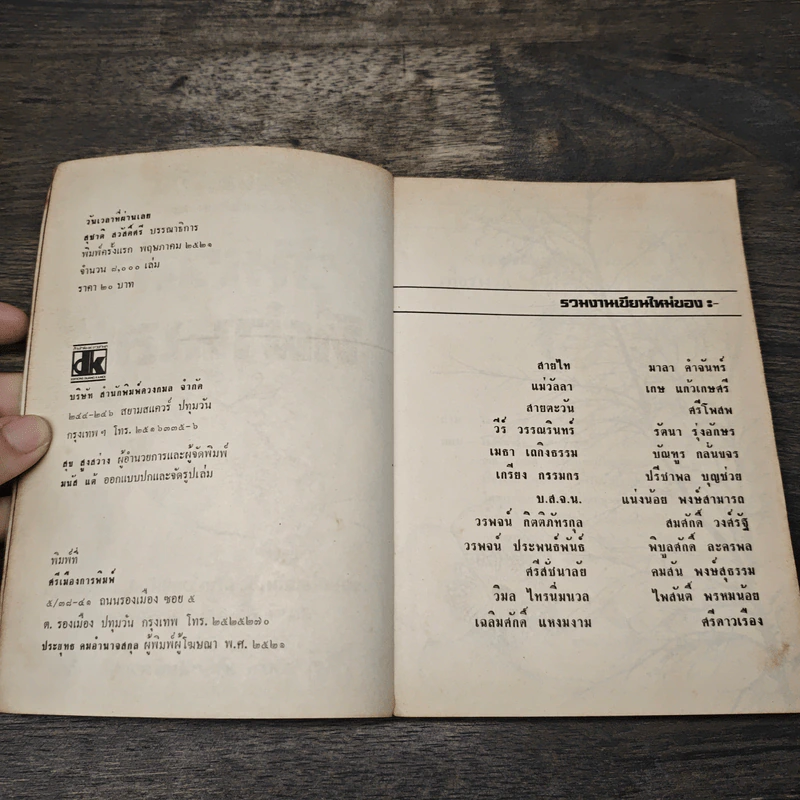 วันเวลาที่ผ่านเลย
สุชาติ สวัสดิ์ศรี บรรณาธิการ
พิมพ์ครั้งแรก พฤษภาคม ๒๕๒๑
จำนวน ๘,๐๐๐ เล่ม
ราคา ๒๐ บาท
dk
บริษัท สำนักพิมพ์ดวงกมล จำกัด
๒๔๔-๒๔๖ สยามสแควร์ ปทุมวัน
กรุงเทพ ฯ โทร. ๒๕๑๖๓๓๕-๖
สุข สูงสว่าง ผู้อำนวยการและผู้จัดพิมพ์
มนัส แด้ ออกแบบปกและจัดรูปเล่ม
พิมพ์ที่
ศรีเมืองการพิมพ์
๕/๓๘-๔๑ ถนนรองเมือง ซอย ๕
ต. รองเมือง ปทุมวัน กรุงเทพ โทร. ๒๕๒๕๒๗๐
ประยุทธ คมอำนาจสกุล ผู้พิมพ์ผู้โฆษณา พ.ศ. ๒๕๒๑
รวมงานเขียนใหม่ของ :-
สายไท มาลา คำจันทร์
แม่วัลลา เกษ แก้วเกษศรี
สายตะวัน ศรีโพสพ
วีร์ วรรณรินทร์ รัตนา รุ่งอักษร
เมธา เถกิงธรรม บัณฑูร กลั่นขจร
เกรียง กรรมกร ปรีชาพล บุญช่วย
บ.ส.จ.น. แน่งน้อย พงษ์สามารถ
วรพจน์ กิตติภัทรกุล สมศักดิ์ วงศ์รัฐ
วรพจน์ ประพนธ์พันธ์ พิบูลศักดิ์ ละครพล
ศรีสัชนาลัย คมสัน พงษ์สุธรรม
วิมล ไทรนิ่มนวล ไพสันติ์ พรหมน้อย
เฉลิมศักดิ์ แหงมงาม ศรีดาวเรือง